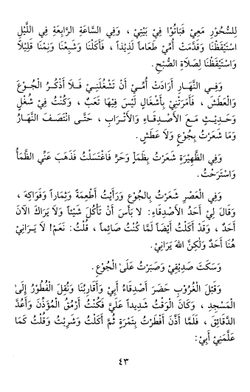 لِلسُّحُورِ مَعِيْ فَبَاتُوْا فِي بَيْتِيْ ، وَفِي السَّاعَةِ الرَّابِعَةِ فِي اللَّيْلِ
اسْتَيْقَظْنَا وَقَدَّمَتْ أُمِّيْ طَعَاماً لَذِيْذاً ، فَأَكَلْنَا وَشَبِعْنَا وَنِمْنَا قَلِيْلاً
وَاسْتَيْقَظْنَا لِصَلَاةِ الصُّبْحِ .
وَفِي النَّهَارِ أَرَادَتْ أُمِّيْ أَنْ تَشْغَلَنِيْ فَلَا أَذْكُرُ الْجُوْعَ
وَالْعَطَشَ ، فَأَمَرَتْنِيْ بِأَشْغَالٍ لَيْسَ فِيْهَا تَعَبٌ ، وَكُنْتُ فِيْ شُغْلٍ
وَحَدِيْثٍ مَعَ الْأَصْدِقَاءِ وَالْأَتْرَابِ ، حَتَّى انْتَصَفَ النَّهَارُ
وَمَا شَعَرْتُ بِجُوْعٍ وَلَا عَطَشٍ .
وَفِي الظَّهِيْرَةِ شَعَرْتُ بِظَمَأٍ وَحَرٍّ فَاغْتَسَلْتُ فَذَهَبَ عَنِّي الظَّمَأُ
وَاسْتَرَحْتُ .
وَفِي الْعَصْرِ شَعَرْتُ بِالْجُوْعِ وَرَأَيْتُ أَطْعِمَةً وَثِمَاراً وَفَوَاكِهَ ،
وَقَالَ لِيْ أَحَدُ الْأَصْدِقَاءِ: لَا بَأْسَ أَنْ تَأْكُلَ شَيْئاً وَلَا يَرَاكَ الْآنَ
أَحَدٌ ، وَقَدْ أَكَلْتُ أَيْضاً لَمَّا كُنْتُ صَائِماً ، قُلْتُ: نَعَمْ! لَا يَرَانِيْ
هُنَا أَحَدٌ وَلٰكِنَّ اللهَ يَرَانِيْ .
وَسَكَتَ صَدِيْقِيْ وَصَبَرْتُ عَلَى الْجُوْعِ .
وَقَبْلَ الْغُرُوْبِ حَضَرَ أَصْدِقَاءُ أَبِيْ وَأَقَارِبُنَا وَنُقِلَ الْفُطُوْرُ إِلَى
الْمَسْجِدِ ، وَكَانَ الْوَقْتُ شَدِيْداً عَلَيَّ فَكُنْتُ أَرْمُقُ الْمُؤَذِّنَ وَأَعُدُّ
الدَّقَائِقَ ، فَلَمَّا أَذَّنَ أَفْطَرْتُ بِتَمْرَةٍ ثُمَّ أَكَلْتُ وَشَرِبْتُ وَقُلْتُ كَمَا
عَلَّمَنِيْ أَبِيْ:
٤٣